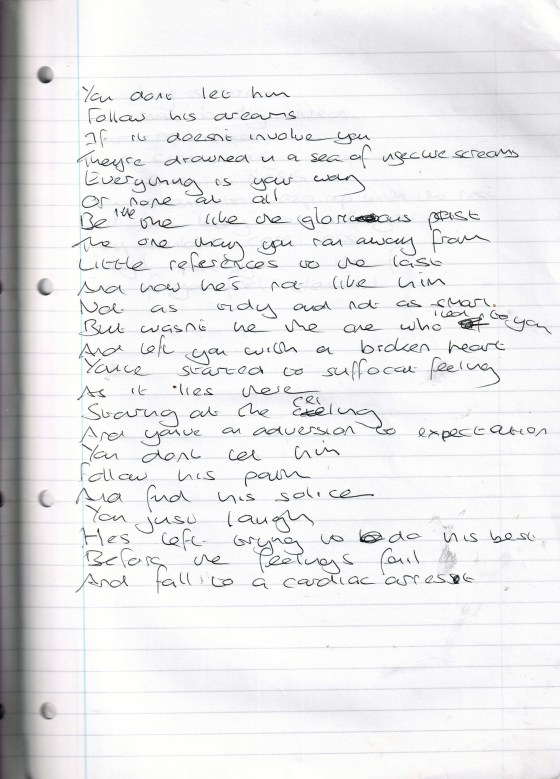 You dont let him
Follow his dreams
If it doesn't involve you
They're drowned in a sea of screams
Everything is your way
Or none at all
Be like the one like the glorious past
The one that you ran away from
Little references to the last
And how he's not like him
Not as tidy and not as smart.
But wasn't he the one who lied to you
And left you with a broken heart
You've started to suffocat feeling
As it lies there
Staring at the ceiling
And you've an adversion to expectation
You dont let him
Follow his path
And find his solice
You just laugh
He's left trying to do his best
Before the feelings fail
And fall to a cardiac arrest